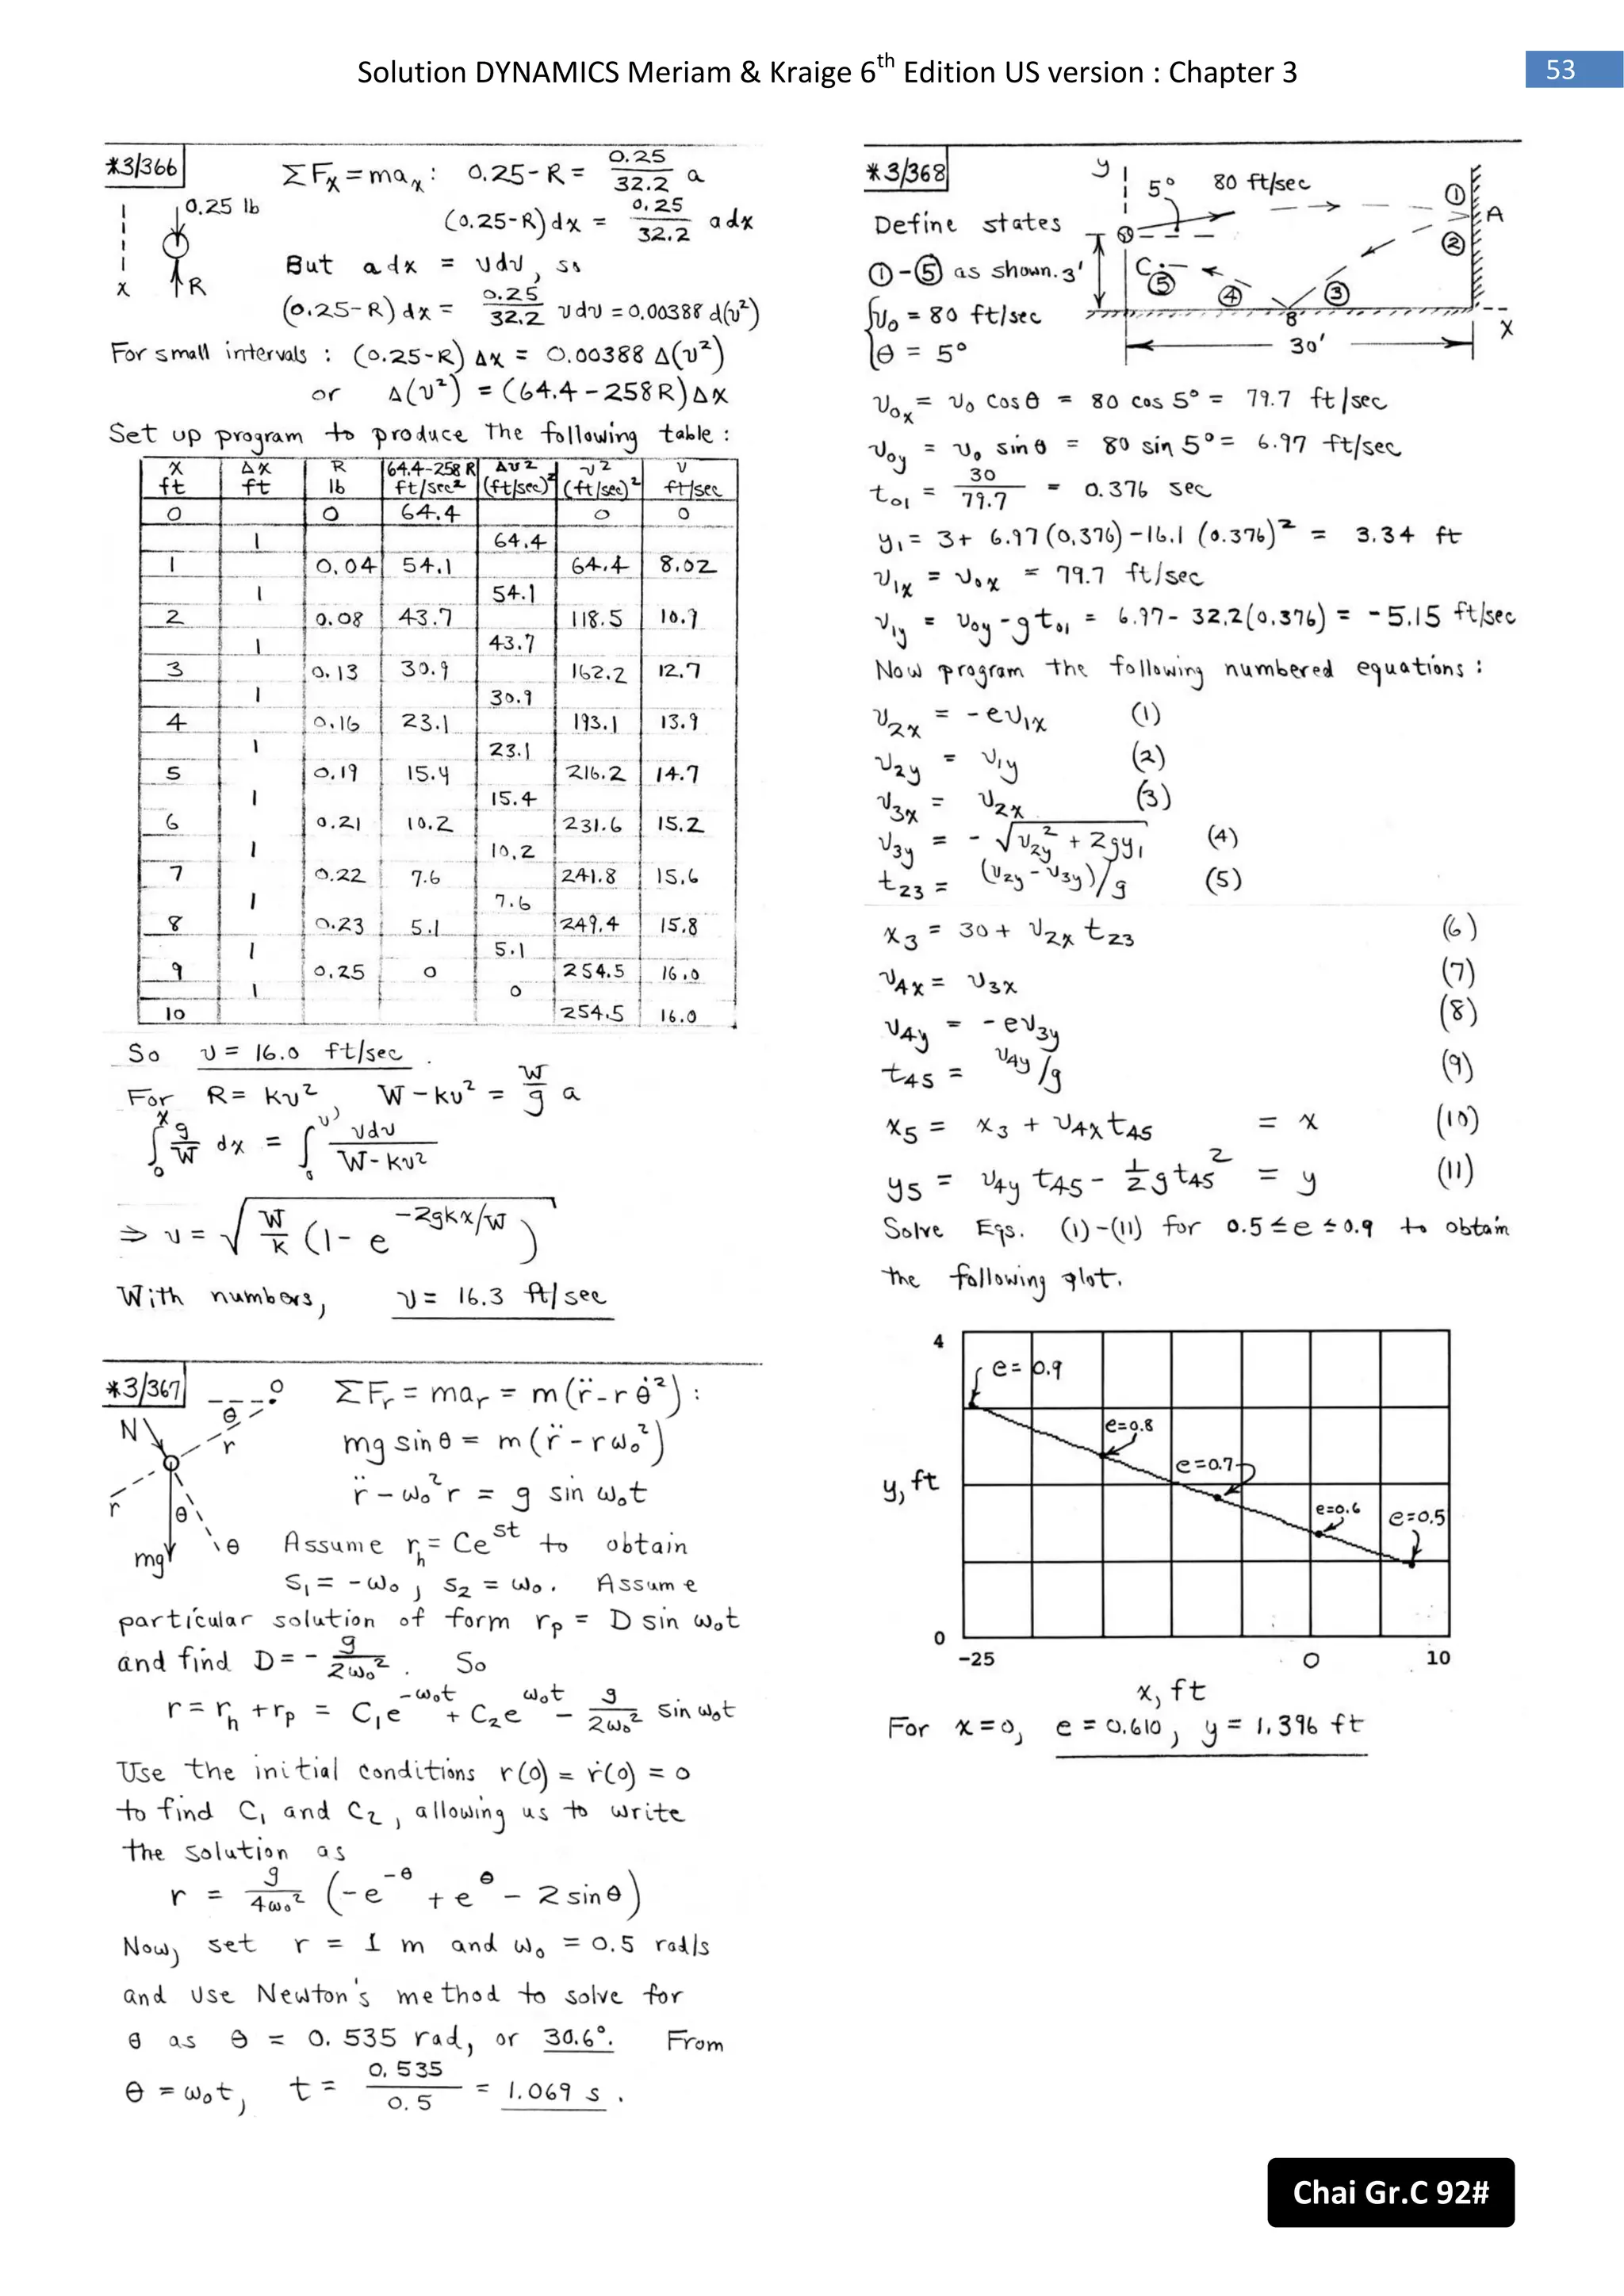 Solution DYNAMICS Meriam & Kraige 6th Edition US version : Chapter 3
53
*3/366
ΣFx = max: 0.25-R = 0.25/32.2 a
0.25 lb
(0.25-R)dx = 0.25/32.2 adx
x
R
But adx = vdv, so
(0.25-R)dx = 0.25/32.2 vdv = 0.00388 d(v²)
For small intervals : (0.25-R) Δx = 0.00388 Δ(v²)
or Δ(v²) = (64.4-258R)Δx
Set up program to produce the following table :
x ft | Δx ft | R lb | 64.4-258 R ft/sec² | Δv² (ft/sec)² | v² (ft/sec)² | v ft/sec
0 0 64.4 0 0
1 64.4
1 0.04 54.1 64.4 8.02
1 54.1
2 0.08 43.7 118.5 10.9
1 43.7
3 0.13 30.9 162.2 12.7
1 30.9
4 0.16 23.1 193.1 13.9
1 23.1
5 0.19 15.4 216.2 14.7
1 15.4
6 0.21 10.2 231.6 15.2
1 10.2
7 0.22 7.6 241.8 15.6
1 7.6
8 0.23 5.1 249.4 15.8
1 5.1
9 0.25 0 254.5 16.0
1 0
10 254.5 16.0
So v = 16.0 ft/sec .
For R = kv², W-kv² = W/g a
∫₀ˣ g/W dx = ∫₀ᵛ vdv/(W-kv²)
⇒ v = √(W/k (1-e^(-2gkx/W)))
With numbers, v = 16.3 ft/sec
*3/367
O
θ
N
r
r
θ
mg
θ
ΣFr = mar = m(r̈-rθ̇²) :
mg sinθ = m(r̈-rω₀²)
r̈-ω₀²r = g sin ω₀t
Assume rh = Ce^st to obtain
s₁ = -ω₀, s₂ = ω₀. Assume
particular solution of form rp = D sin ω₀t
and find D = - g/2ω₀². So
r = rh + rp = C₁e^(-ω₀t) + C₂e^(ω₀t) - g/2ω₀² sin ω₀t
Use the initial conditions r(0) = ṙ(0) = 0
to find C₁ and C₂, allowing us to write
the solution as
r = g/4ω₀² (-e^(-θ) + e^θ - 2 sinθ)
Now, set r = 1 m and ω₀ = 0.5 rad/s
and use Newton's method to solve for
θ as θ = 0.535 rad, or 30.6°. From
θ = ω₀t, t = 0.535/0.5 = 1.069 s .
*3/368
y
5°
80 ft/sec
①
A
②
C
⑤
④
③
B
x
3'
30'
Define states
①-⑤ as shown.
{v₀ = 80 ft/sec
θ = 5°
v₀x = v₀ cosθ = 80 cos 5° = 79.7 ft/sec
v₀y = v₀ sinθ = 80 sin 5° = 6.97 ft/sec
t₀₁ = 30/79.7 = 0.376 sec
y₁ = 3+ 6.97(0.376) -16.1 (0.376)² = 3.34 ft
v₁x = v₀x = 79.7 ft/sec
v₁y = v₀y - gt₀₁ = 6.97- 32.2(0.376) = -5.15 ft/sec
Now program the following numbered equations :
v₂x = -ev₁x (1)
v₂y = v₁y (2)
v₃x = v₂x (3)
v₃y = - √(v₂y² + 2gy₁) (4)
t₂₃ = (v₂y - v₃y)/g (5)
x₃ = 30+ v₂x t₂₃ (6)
v₄x = v₃x (7)
v₄y = -ev₃y (8)
t₄₅ = v₄y/g (9)
x₅ = x₃ + v₄x t₄₅ = x (10)
y₅ = v₄y t₄₅ - ½gt₄₅² = y (11)
Solve Eqs. (1)-(11) for 0.5 ≤ e ≤ 0.9 to obtain
the following plot.
4
e = 0.9
e=0.8
e=0.7
e=0.6
e=0.5
y, ft
0
-25
0
10
x, ft
For x=0, e = 0.610, y = 1.396 ft
Chai Gr.C 92#